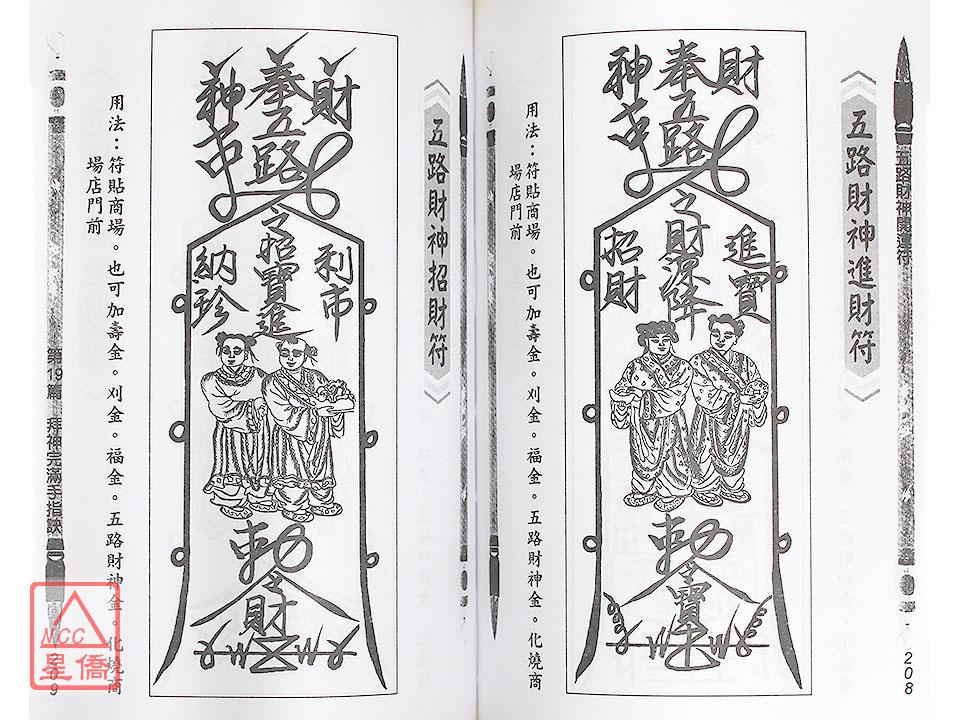 五路財神開運符
208
五路財神進財符
財
奉五路
神
之財源降
進寶
招財
敕令寶
用法：符貼商場。也可加壽金。刈金。福金。五路財神金。化燒商
場店門前
五路財神招財符
財
奉五路
神
之招寶進
利市
納珍
敕令財
用法：符貼商場。也可加壽金。刈金。福金。五路財神金。化燒商
場店門前
第19篇　拜神完滿手指訣
209
NCC
星僑